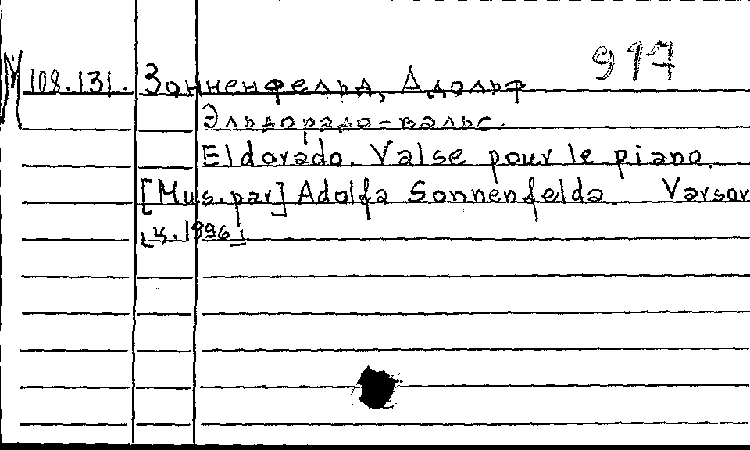 917
M 108.131. Зонненфельд, Адольф
Эльдорадо-вальс.
Eldorado. Valse pour le piano.
[Mus. par] Adolfa Sonnenfelda. Varsov
[ч. 1896]